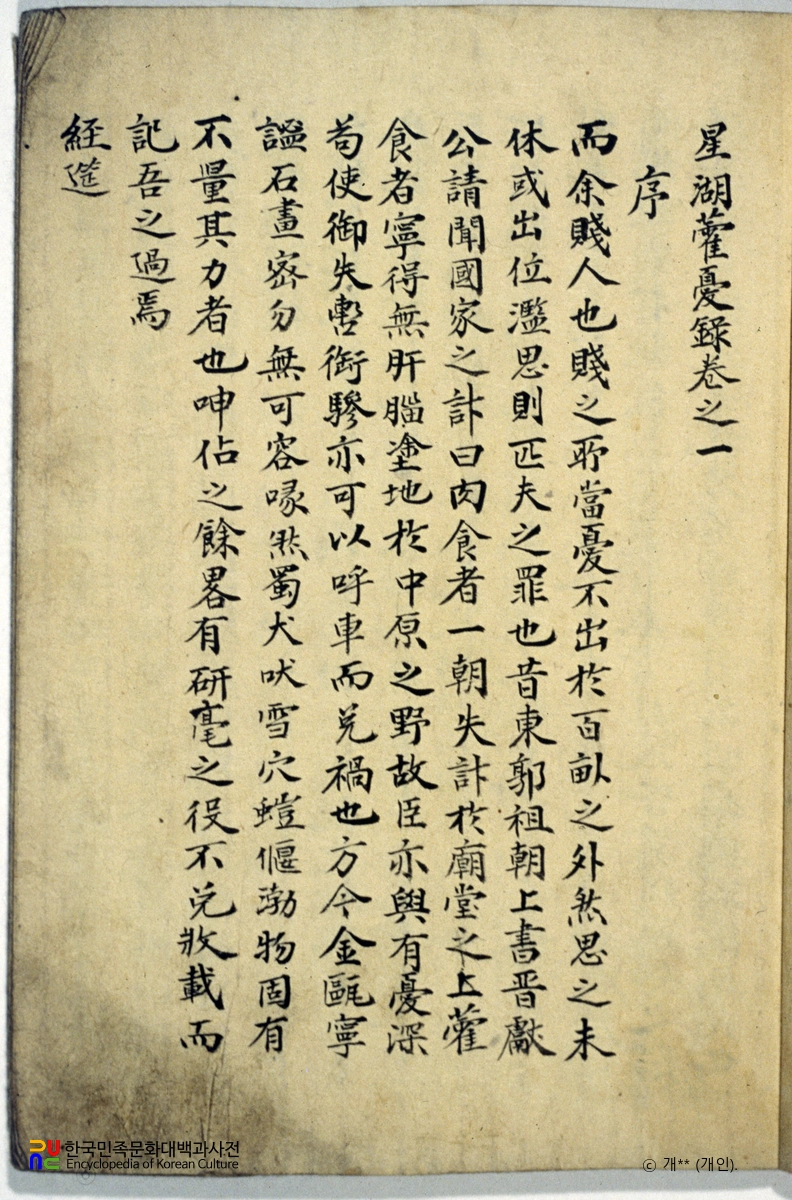 星湖藿憂錄卷之一
序
而余賤人也賤之所當憂不出於百畝之外然思之未
休或出位濫思則匹夫之罪也昔東郭祖朝上書晋獻
公請聞國家之計曰肉食者一朝失計於廟堂之上藿
食者寧得無肝腦塗地於中原之野故臣亦與有憂深
苟使御失轡銜驂亦可以呼車而免禍也方今金甌寧
謐石畫密勿無可容喙然蜀犬吠雪穴螘偃渤物固有
不量其力者也呻佔之餘畧有硏毫之役不免收載而
記吾之過焉
経筵
한국민족문화대백과사전
Encyclopedia of Korean Culture
ⓒ 개** (개인).